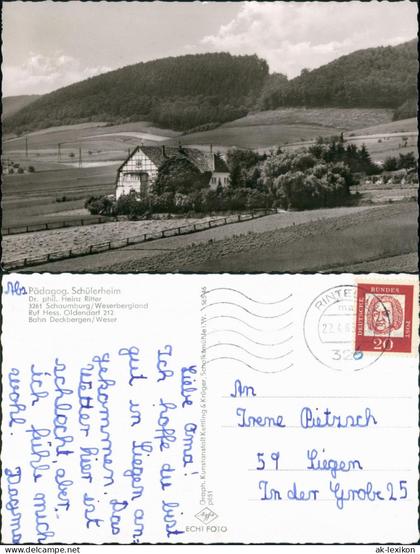 Pädagog. Schülerheim
Dr. phil. Heinz Ritter
3261 Schaumburg/Weserbergland
Ruf Hess. Oldendorf 212
Bahn Deckbergen/Weser
Abs
Liebe Oma!
Ich hoffe du bist
gut in Siegen an-
gekommen. Das
Wetter hier ist
schlecht aber
ich fühle mich
wohl. Dagmar
Graph. Kunstanstalt Kettling & Krüger, Schalksmühle i. W.
Agfa
ECHT FOTO
RINTELN
326
DEUTSCHE BUNDESPOST
20
An
Irene Pietzsch
59 Siegen
In der Grobe 25
ak-lexikon.com